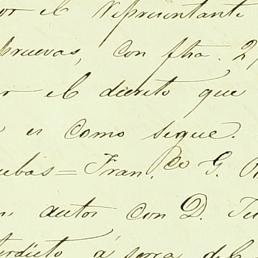 or el Representante
pruevas, con fha. 2,
r el decreto que
es como sigue.
uebas = Fran.co G.
autos con D.
terdicto á